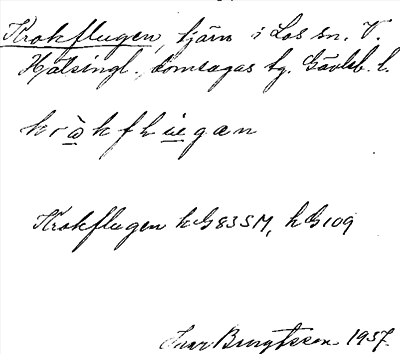 Krokflugen, tjärn i Los sn. V.
Hälsingl. domsagas tg. Gävleb. l.
kròkflùgan
Krokflugen kG83SM, hG109
Ivar Bengtsson 1937.